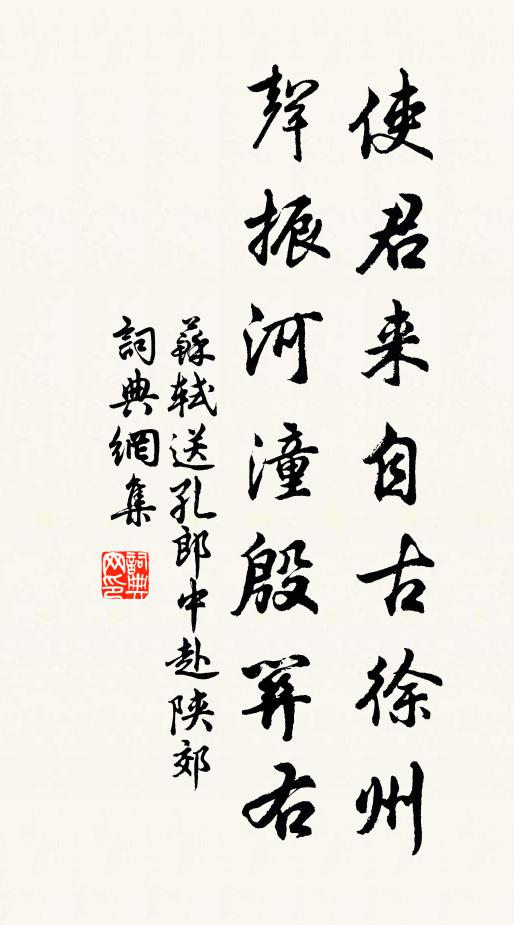 使君来自古徐州
聲振河潼殷關右
蘇軾送孔郎中赴陝郊
詞典網集
詞典
网印